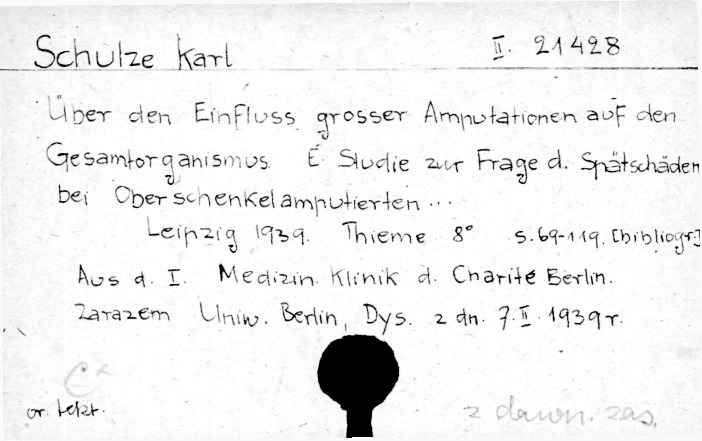 Schulze Karl II. 21428
Über den Einfluss grosser Amputationen auf den
Gesamtorganismus. E. Studie zur Frage d. Spätschäden
bei Oberschenkelamputierten...
Leipzig 1939. Thieme 8° s. 69-119. [bibliogr.]
Aus d. I. Medizin. Klinik d. Charité Berlin.
Zarazem Uniw. Berlin, Dys. z dn. 7.II.1939r.
z dawn. zas.